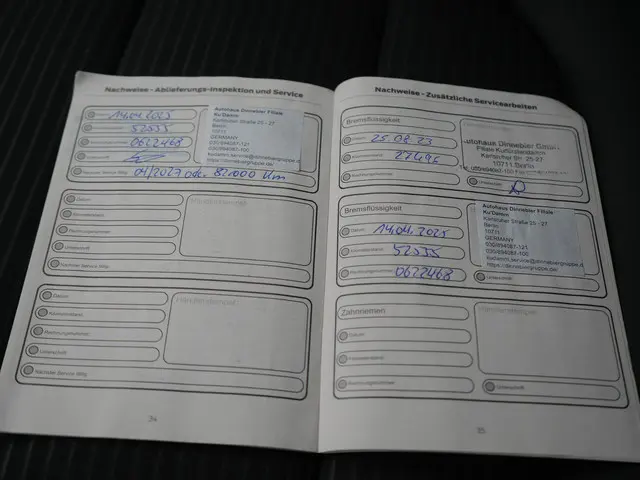 Nachweise - Ablieferungs-Inspektion und Service
Datum
14.04.2025
52535
0622468
Nächster Service fällig
04/2027 oder 82000 km
Autohaus Dinnebier Filiale
Ku'Damm
Karlsruher Straße 25 - 27
Berlin
10711
GERMANY
030/894087-121
030/894087-100
Datum
Kilometerstand
Rechnungsnummer
Unterschrift
Nächster Service fällig
Händlerstempel
Datum
Kilometerstand
Rechnungsnummer
Unterschrift
Nächster Service fällig
Händlerstempel
34
Nachweise - Zusätzliche Servicearbeiten
Bremsflüssigkeit
25.08.23
27495
Autohaus Dinnebier GmbH
Filiale Kurfürstendamm
Karlsruher Str. 25-27
10711 Berlin
Unterschrift
Bremsflüssigkeit
Datum
14.04.2025
Kilometerstand
52535
Rechnungsnummer
0622468
Autohaus Dinnebier Filiale
Ku'Damm
Karlsruher Straße 25 - 27
Berlin
10711
GERMANY
030/894087-121
030/894087-100
Unterschrift
Zahnriemen
Datum
Kilometerstand
Rechnungsnummer
Händlerstempel
Unterschrift
35